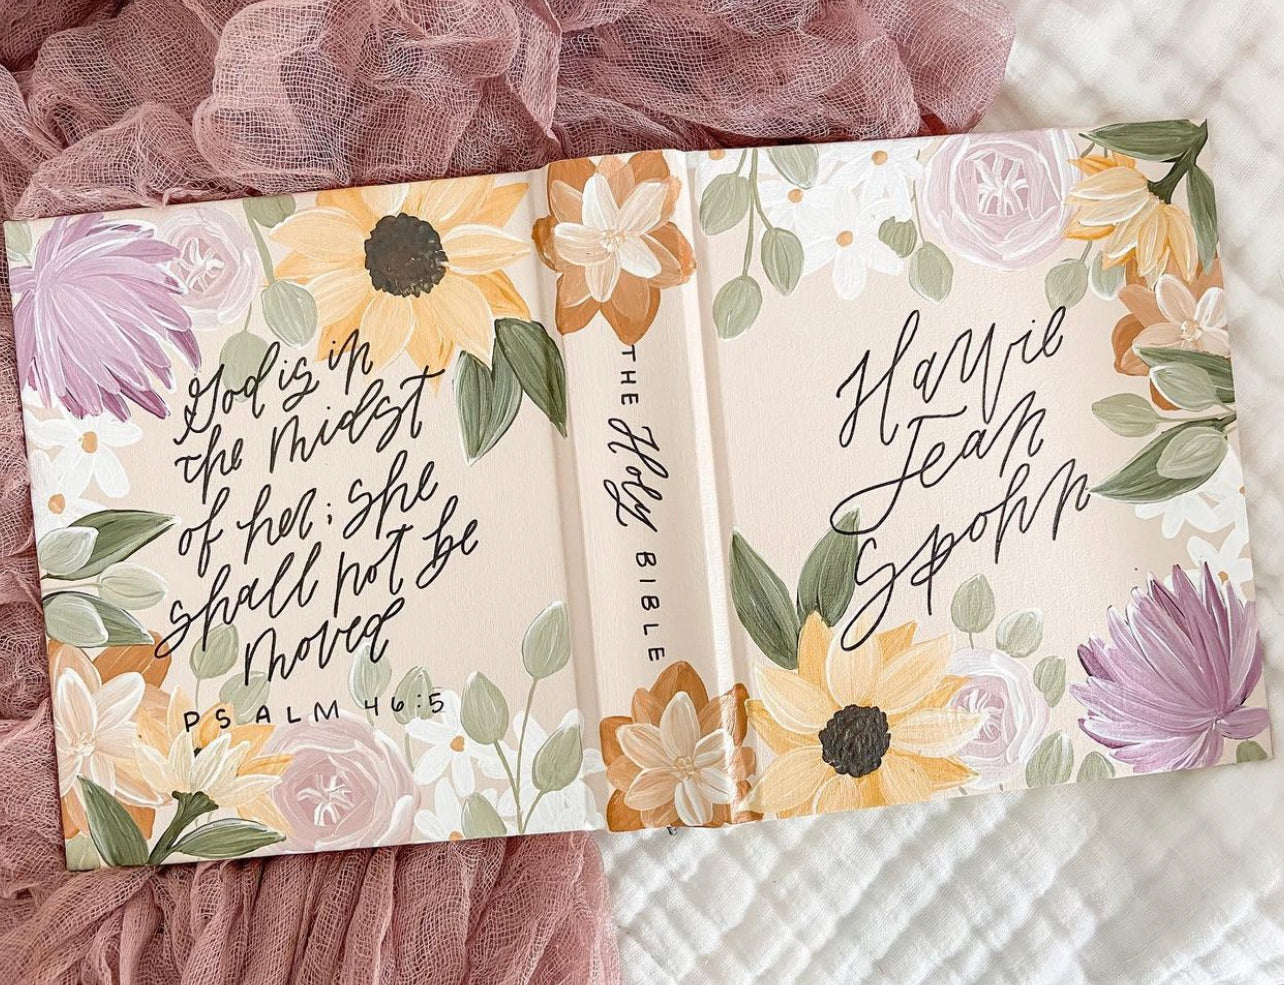 God is in
the midst
of her; she
shall not be
moved
PSALM 46:5
THE Holy BIBLE
Harvie
Jean
Spohn